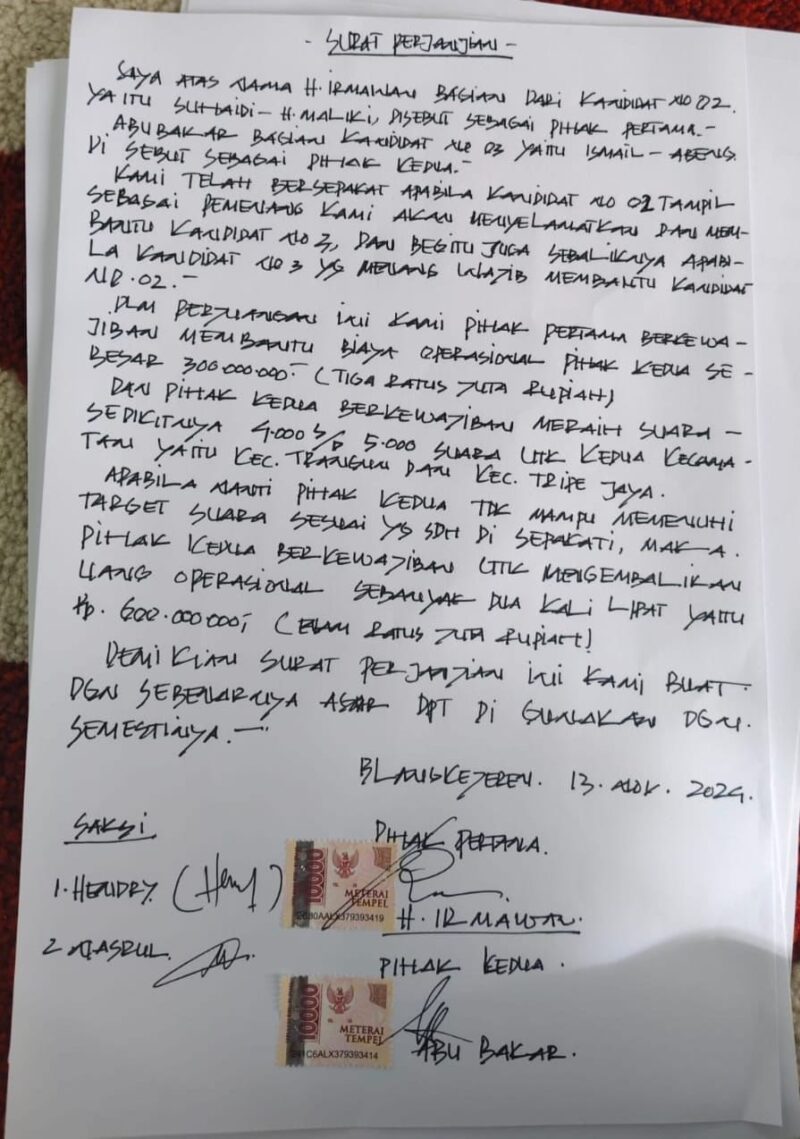 - SURAT PERJANJIAN -
SAYA ATAS NAMA H. IRMAWAN BAGIAN DARI KANDIDAT NO 02.
YAITU SUHAIDI - H. MALIKI, DISEBUT SEBAGAI PIHAK PERTAMA.-
ABUBAKAR BAGIAN KANDIDAT NO 03 YAITU ISMAIL - ABENG.
DI SEBUT SEBAGAI PIHAK KEDUA.-
KAMI TELAH BERSEPAKAT APABILA KANDIDAT NO 02 TAMPIL
SEBAGAI PEMENANG KAMI AKAN MENYELAMATKAN DAN MEM-
BANTU KANDIDAT NO 3, DAN BEGITU JUGA SEBALIKNYA APABI-
LA KANDIDAT NO 3 YG MENANG WAJIB MEMBANTU KANDIDAT
NO. 02.-
DLM PERJUANGAN INI KAMI PIHAK PERTAMA BERKEWA-
JIBAN MEMBANTU BIAYA OPERASIONAL PIHAK KEDUA SE-
BESAR 300.000.000.- (TIGA RATUS JUTA RUPIAH)
DAN PIHAK KEDUA BERKEWAJIBAN MERAIH SUARA -
SEDIKITNYA 4.000 S/D 5.000 SUARA UTK KEDUA KECAMA-
TAN YAITU KEC. TRANGUN DAN KEC. TRIPE JAYA.
APABILA NANTI PIHAK KEDUA TDK MAMPU MEMENUHI
TARGET SUARA SESUAI YG SDH DI SEPAKATI, MAKA.
PIHAK KEDUA BERKEWAJIBAN UTK MENGEMBALIKAN
UANG OPERASIONAL SEBANYAK DUA KALI LIPAT YAITU
Rp. 600.000.000,- (ENAM RATUS JUTA RUPIAH)
DEMIKIAN SURAT PERJANJIAN INI KAMI BUAT.
DGN SEBENARNYA AGAR DPT DI GUNAKAN DGN.
SEMESTINYA.-
BLANGKEJEREN. 13. NOV. 2024.
SAKSI.
PIHAK PERTAMA.
1. HENDRY. (Heny)
10000
METERAI
TEMPEL
379393419
H. IRMAWAN.
2. NASRUL.
PIHAK KEDUA.
10000
METERAI
TEMPEL
C6ALX379393414
ABU BAKAR.